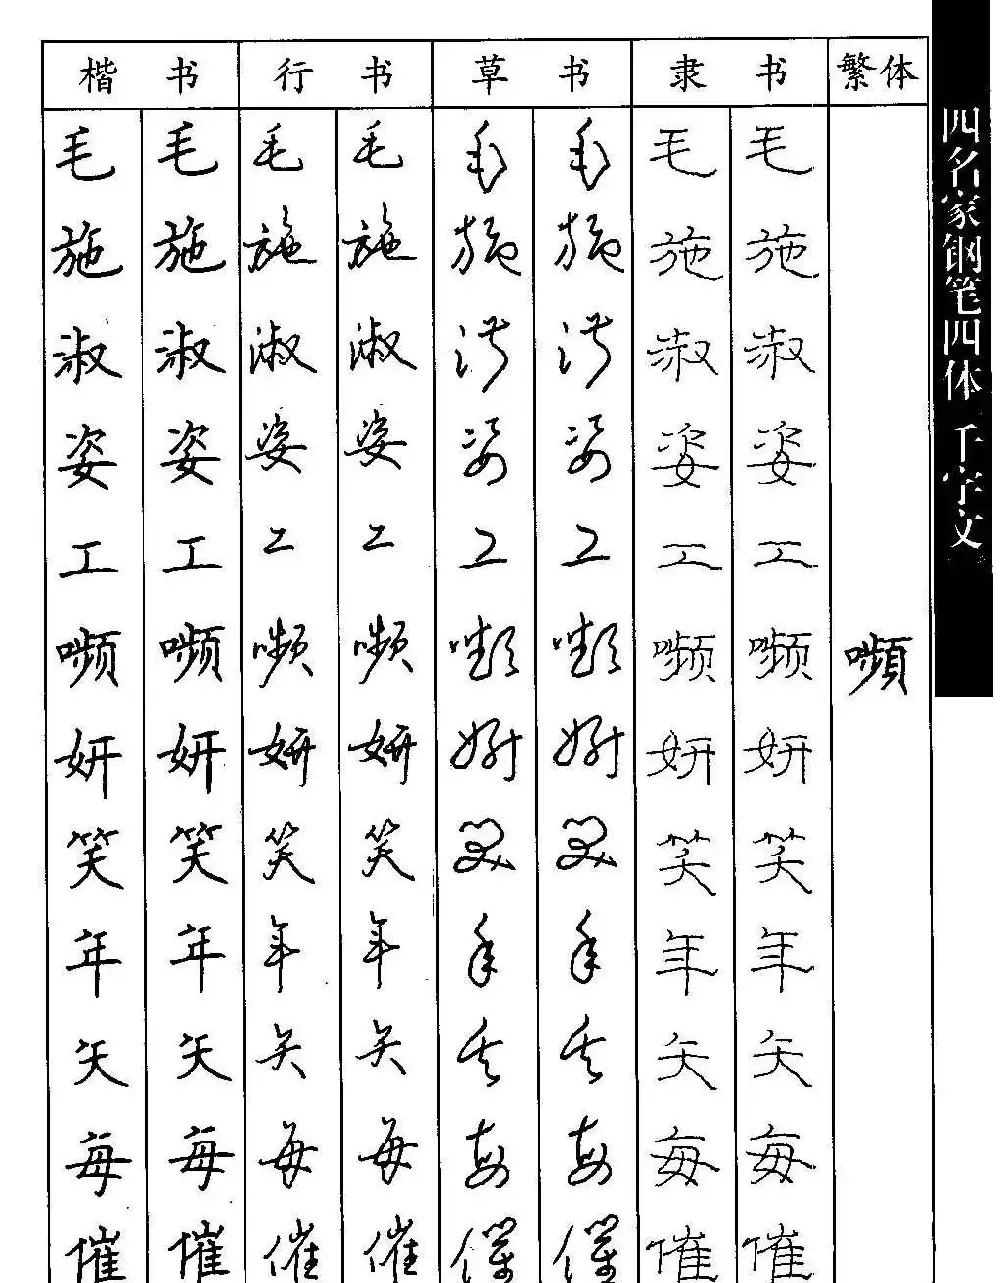 楷书 行书 草书 隶书 繁体
毛 毛 毛 毛 毛 毛 毛 毛
施 施 施 施 施 施 施 施
淑 淑 淑 淑 淑 淑 淑 淑
姿 姿 姿 姿 姿 姿 姿 姿
工 工 工 工 工 工 工 工
嚬 嚬 嚬 嚬 嚬 嚬 嚬 嚬 嚬
妍 妍 妍 妍 妍 妍 妍 妍
笑 笑 笑 笑 笑 笑 笑 笑
年 年 年 年 年 年 年 年
矢 矢 矢 矢 矢 矢 矢 矢
每 每 每 每 每 每 每 每
催 催 催 催 催 催 催 催
四名家钢笔四体千字文